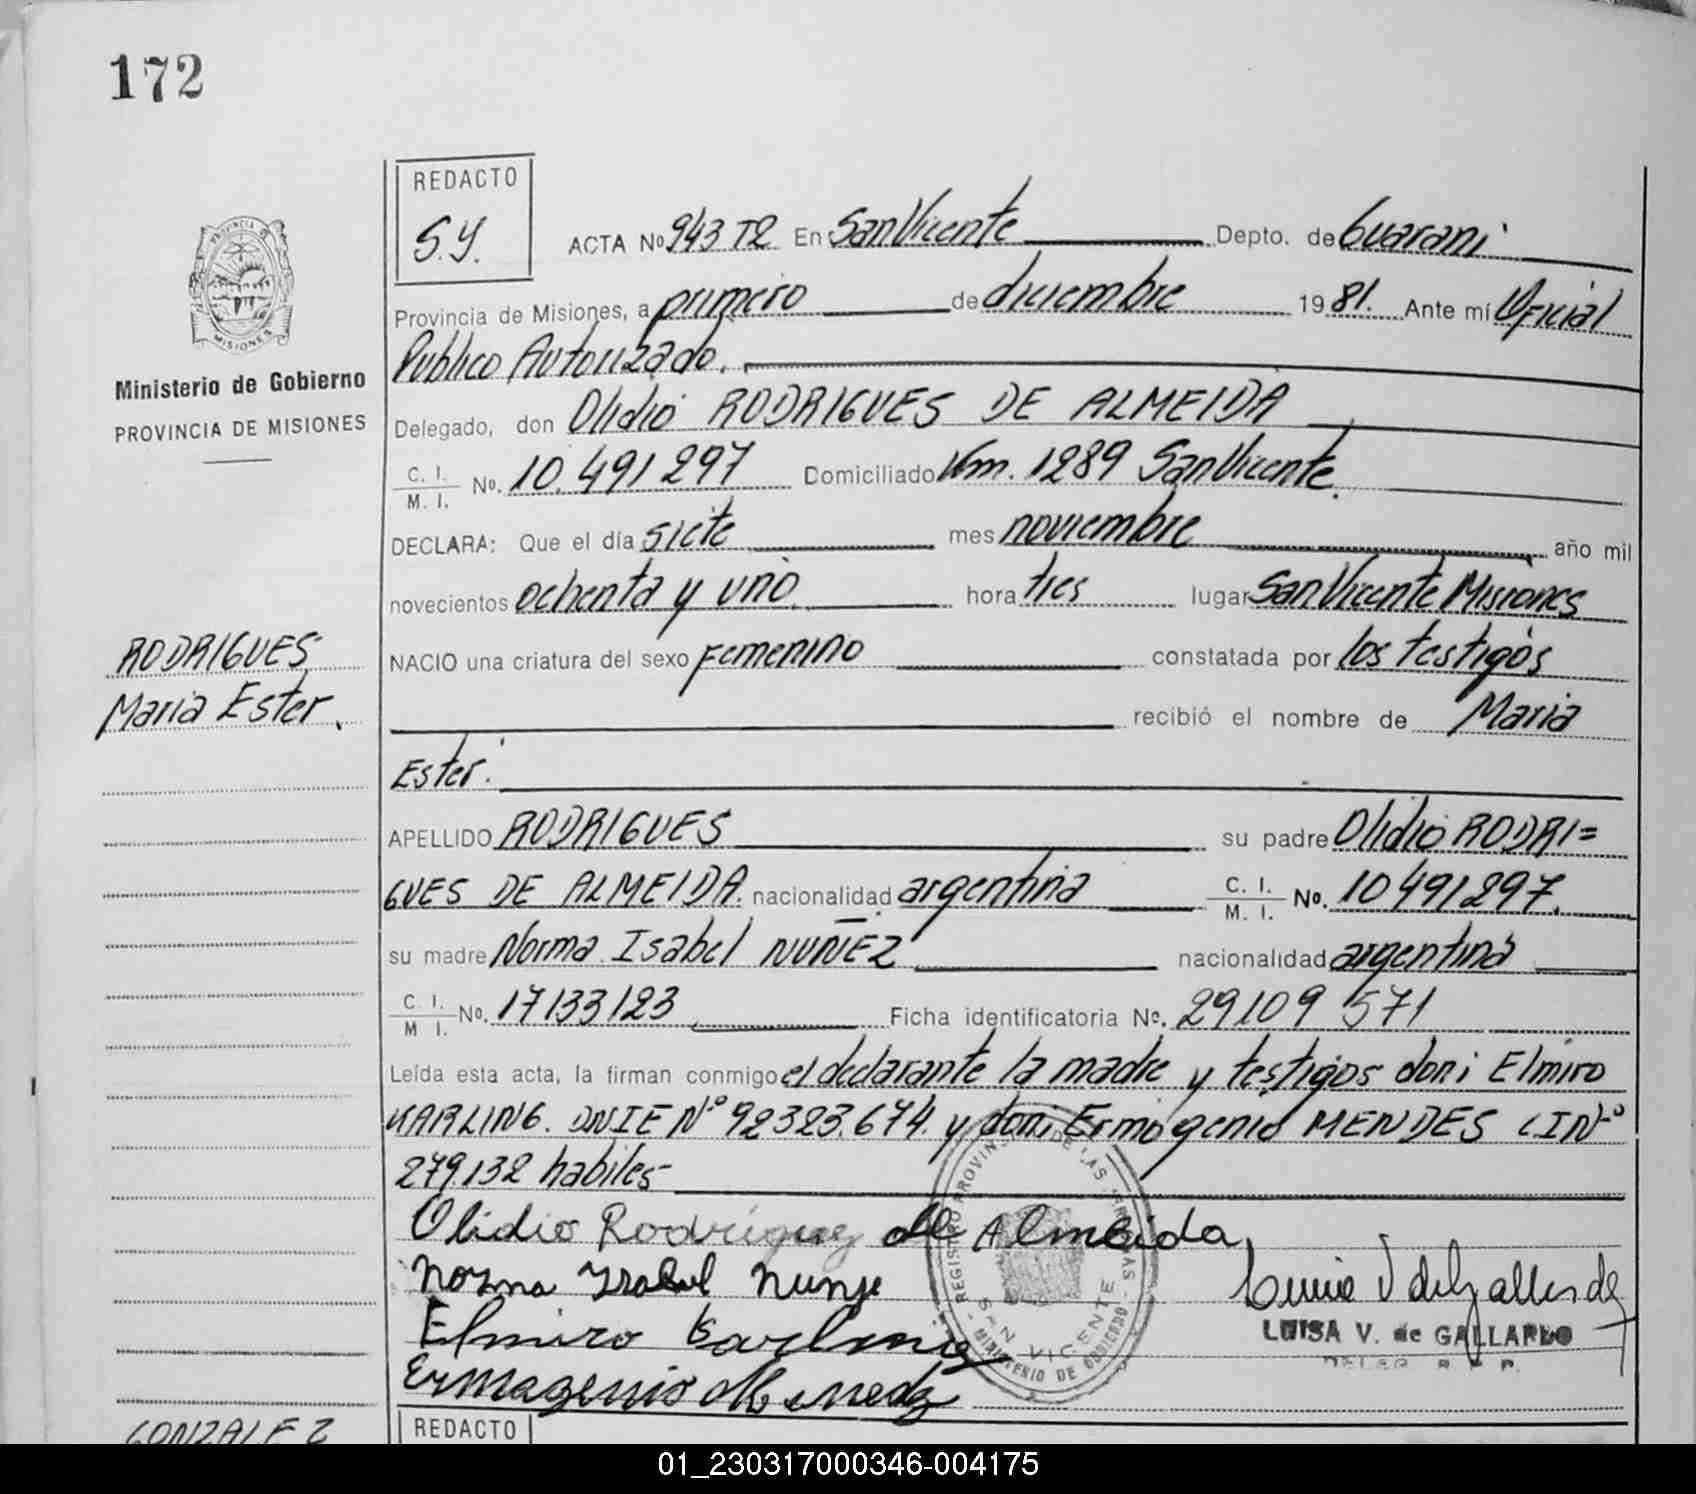 172
REDACTO
S.Y.
ACTA Nº 943 T2 En San Vicente Depto. de Guarani
Provincia de Misiones, a primero de diciembre 1981. Ante mí Oficial
Publico Autorizado.
Delegado, don Olidio RODRIGUES DE ALMEIDA
C. I. / M. I. No. 10.491297 Domiciliado Km. 1289 San Vicente.
DECLARA: Que el día siete mes noviembre año mil
novecientos ochenta y uno hora tres lugar San Vicente Misiones
NACIO una criatura del sexo Femenino constatada por los testigos
recibió el nombre de Maria
Ester.
APELLIDO RODRIGUES su padre Olidio RODRI=
GUES DE ALMEIDA. nacionalidad argentina C. I. / M. I. No. 10491297.
su madre Norma Isabel NUÑEZ nacionalidad argentina
C. I. / M I. No. 17133123 Ficha identificatoria No. 29109 571
Leída esta acta, la firman conmigo el declarante la madre y testigos don: Elmiro
KARLING. DNIE Nº 92323.674. y don: Ermogenio MENDES CI Nº
279.132 habiles
Olidio Rodriguez de Almeida
Norma Isabel Nunje
Elmiro Karling
Ermogenio Mendez
LUISA V. de GALLARDO
DELEG. R. P. P.
REGISTRO PROVINCIAL DE LAS PERSONAS
SAN VICENTE
MINISTERIO DE GOBIERNO
PROVINCIA DE
MISIONES
Ministerio de Gobierno
PROVINCIA DE MISIONES
RODRIGUES
Maria Ester.
GONZALEZ
REDACTO
01_230317000346-004175